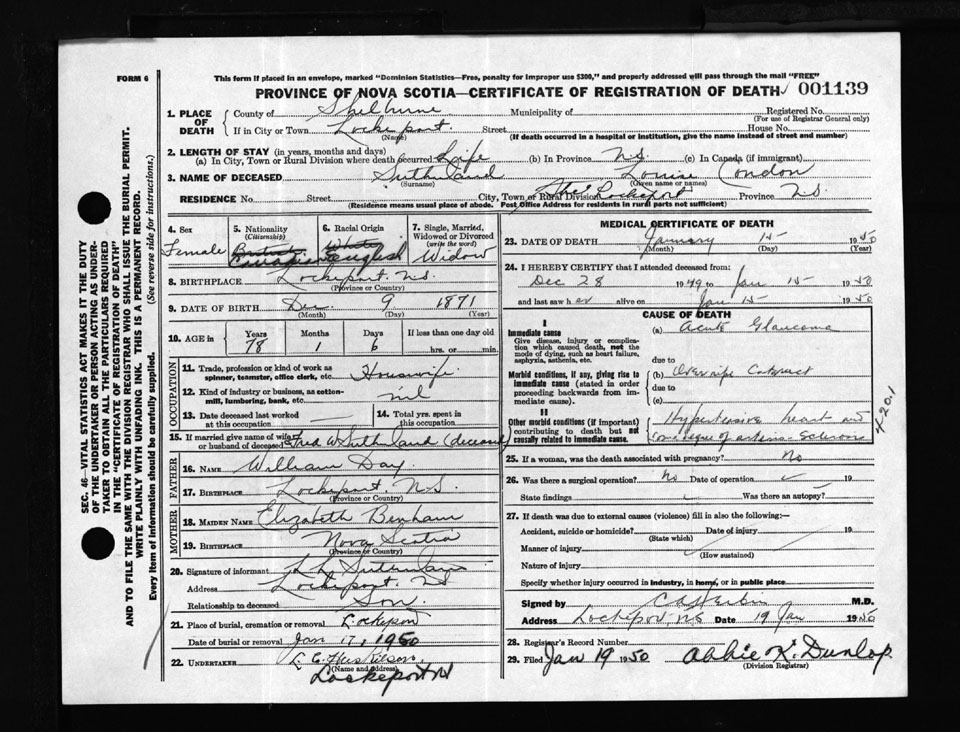 FORM 6
This form if placed in an envelope, marked "Dominion Statistics—Free, penalty for improper use $300," and properly addressed will pass through the mail "FREE"
PROVINCE OF NOVA SCOTIA—CERTIFICATE OF REGISTRATION OF DEATH 001139
SEC. 46—VITAL STATISTICS ACT MAKES IT THE DUTY
OF THE UNDERTAKER OR PERSON ACTING AS UNDER-
TAKER TO OBTAIN ALL THE PARTICULARS REQUIRED
IN THE "CERTIFICATE OF REGISTRATION OF DEATH"
AND TO FILE THE SAME WITH THE DIVISION REGISTRAR WHO SHALL ISSUE THE BURIAL PERMIT.
WRITE PLAINLY WITH UNFADING INK. THIS IS A PERMANENT RECORD.
Every item of information should be carefully supplied. (See reverse side for instructions.)
1. PLACE OF DEATH
County of Shelburne Municipality of Registered No.
(For use of Registrar General only)
If in City or Town Lockeport. Street House No.
(Name) (If death occurred in a hospital or institution, give the name instead of street and number)
2. LENGTH OF STAY (in years, months and days)
(a) In City, Town or Rural Division where death occurred Life (b) In Province N.S. (c) In Canada (if immigrant)
3. NAME OF DECEASED Sutherland Louise Condon
(Surname) (Given name or names)
RESIDENCE No. Street City, Town or Rural Division Lockeport Province N.S.
(Residence means usual place of abode. Post Office Address for residents in rural parts not sufficient)
4. Sex
Female
5. Nationality
(Citizenship)
British
Canadian
6. Racial Origin
White
English
7. Single, Married,
Widowed or Divorced
(write the word)
Widow
8. BIRTHPLACE Lockeport, N.S.
(Province or Country)
9. DATE OF BIRTH Dec. 9 1871
(Month) (Day) (Year)
10. AGE in
Years Months Days If less than one day old
78 1 6 hrs. or min.
OCCUPATION
11. Trade, profession or kind of work as
spinner, teamster, office clerk, etc. Housewife.
12. Kind of industry or business, as cotton-
mill, lumbering, bank, etc. nil
13. Date deceased last worked
at this occupation —
14. Total yrs. spent in
this occupation
15. If married give name of wife
or husband of deceased Fred W Sutherland (deceased)
FATHER
16. NAME William Day.
17. BIRTHPLACE Lockeport, N.S.
(Province or Country)
MOTHER
18. MAIDEN NAME Elizabeth Benham
19. BIRTHPLACE Nova Scotia
(Province or Country)
20. Signature of informant
Address Lockeport, N.S
Relationship to deceased Son.
21. Place of burial, cremation or removal Lockeport
Date of burial or removal Jan 17, 1950
22. UNDERTAKER
(Name and Address)
Lockeport NS
MEDICAL CERTIFICATE OF DEATH
23. DATE OF DEATH January 15 1950
(Month) (Day)
24. I HEREBY CERTIFY that I attended deceased from:
Dec 28 1949 to Jan 15 1950
and last saw her alive on Jan 15 1950
CAUSE OF DEATH
I
Immediate cause
Give disease, injury or complica-
tion which caused death, not the
mode of dying, such as heart failure,
asphyxia, asthenia, etc.
(a) Acute Glaucoma
due to
Morbid conditions, if any, giving rise to
immediate cause (stated in order
proceeding backwards from im-
mediate cause).
(b) Overripe Cataract
due to
(c)
II
Other morbid conditions (if important)
contributing to death but not
causally related to immediate cause.
Hypertensive heart and
25. If a woman, was the death associated with pregnancy? No
26. Was there a surgical operation? No Date of operation 19
State findings Was there an autopsy?
27. If death was due to external causes (violence) fill in also the following:
Accident, suicide or homicide? Date of injury 19
(State which)
Manner of injury
(How sustained)
Nature of injury
Specify whether injury occurred in industry, in home, or in public place
Signed by M.D.
Address Lockeport, N.S Date 19 Jan 1950
28. Registrar's Record Number
29. Filed Jan 19 1950 Abbie K. Dunlop
(Division Registrar)